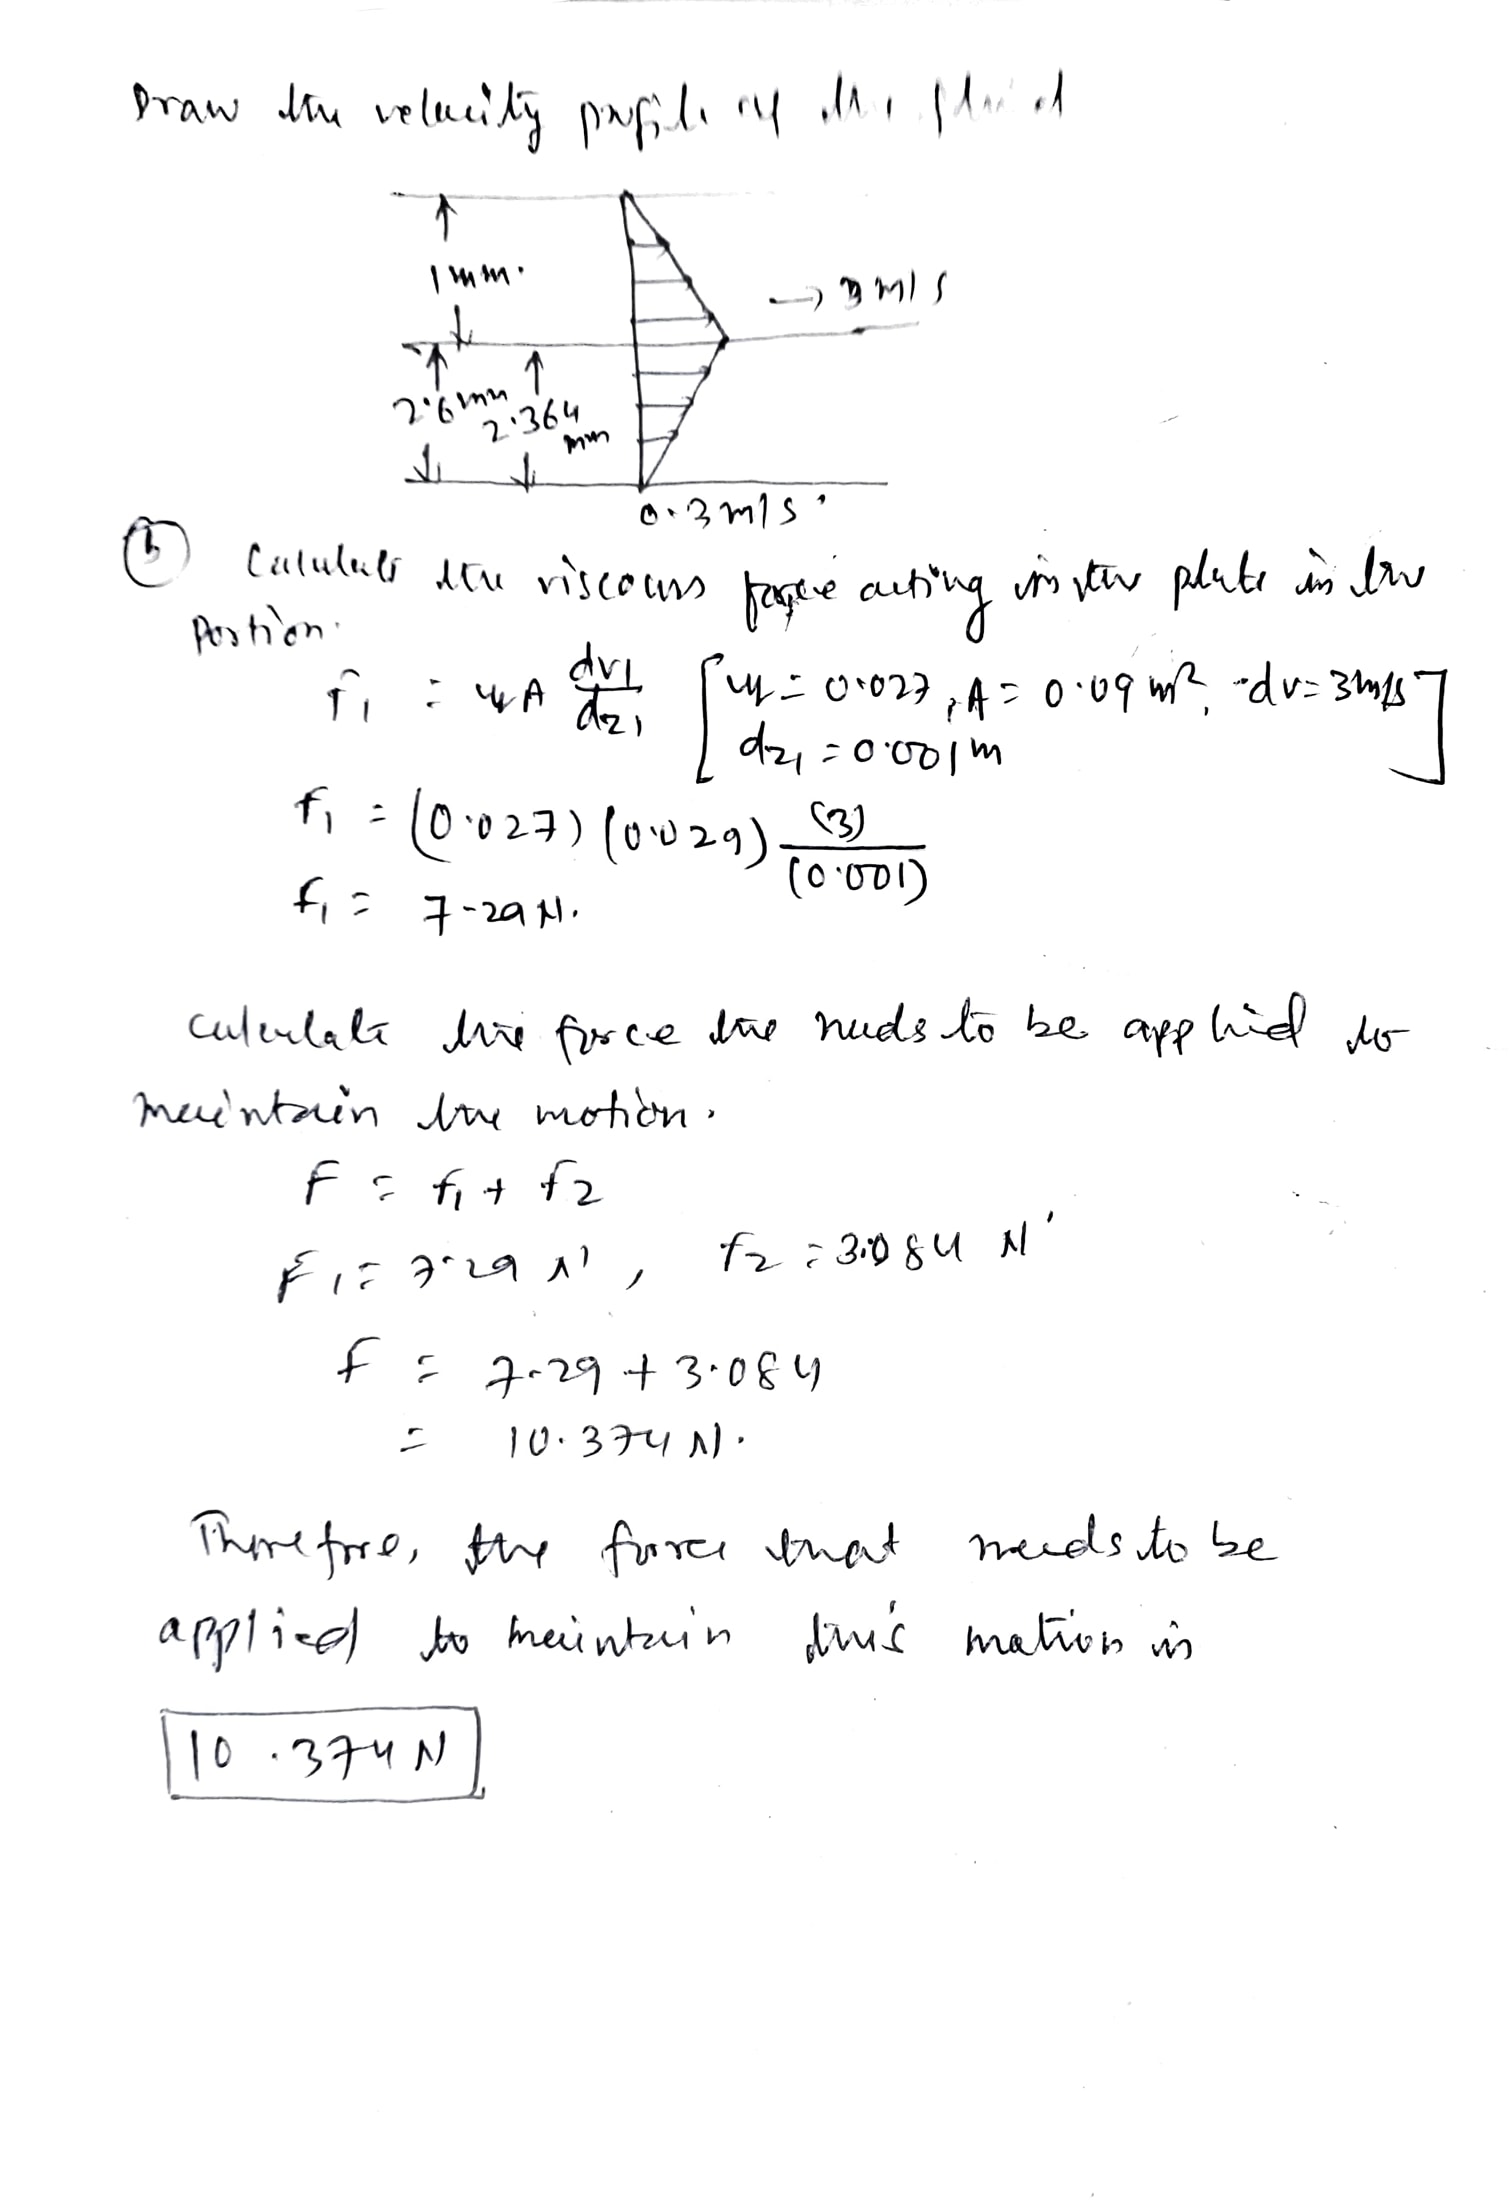 Draw the velocity profile of the fluid
1mm.
→ 3 m/s
2.6mm
2.364
mm
0.3m/s.
(b) Calculate the viscous force acting in the plate in the
Portion.
F1 = μA dv1/dz1 [μ = 0.027, A = 0.09 m², dv = 3m/s
dz1 = 0.001m]
f1 = (0.027) (0.029) (3)/(0.001)
f1 = 7-29N.
calculate the force the nuds to be applied to
maintain the motion.
F = f1 + f2
F1 = 7.29 N, f2 = 3.084 N
f = 7.29 + 3.084
= 10.374 N.
Therefore, the force that needs to be
applied to maintain this motion is
10.374 N